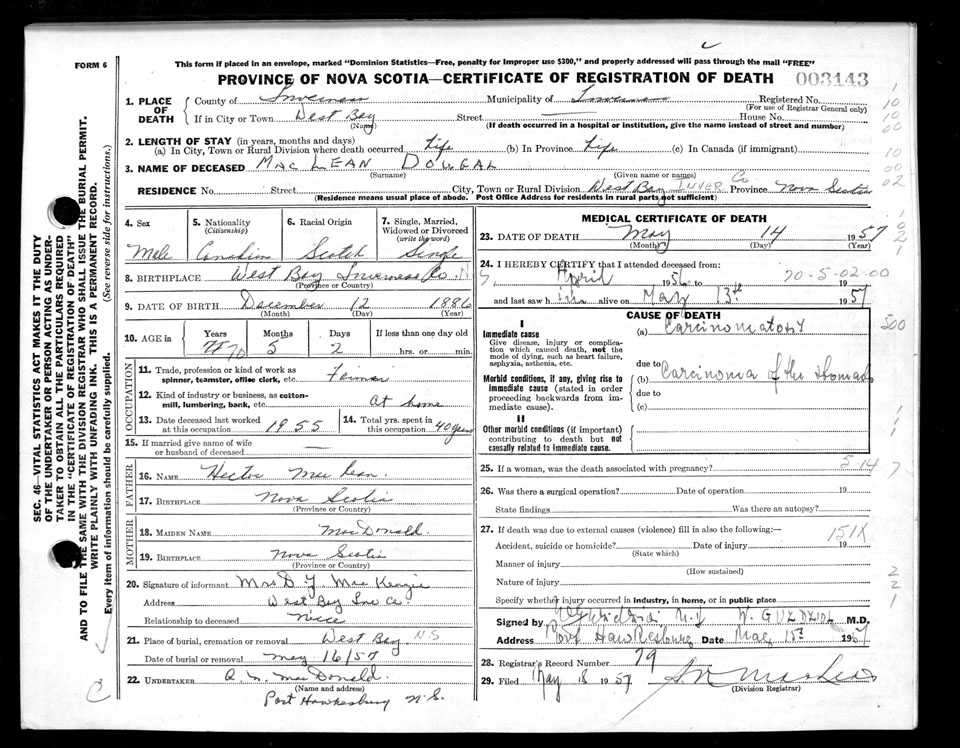 FORM 6
This form if placed in an envelope, marked "Dominion Statistics—Free, penalty for improper use $300," and properly addressed will pass through the mail "FREE"
PROVINCE OF NOVA SCOTIA—CERTIFICATE OF REGISTRATION OF DEATH 003143
1. PLACE OF DEATH
County of Inverness Municipality of Inverness Registered No.
(For use of Registrar General only)
If in City or Town West Bay Street House No.
(Name) (If death occurred in a hospital or institution, give the name instead of street and number)
2. LENGTH OF STAY (in years, months and days)
(a) In City, Town or Rural Division where death occurred Life (b) In Province Life (c) In Canada (if immigrant)
3. NAME OF DECEASED MacLEAN DOUGAL
(Surname) (Given name or names)
RESIDENCE No. Street City, Town or Rural Division West Bay INVER Co Province Nova Scotia
(Residence means usual place of abode. Post Office Address for residents in rural parts not sufficient)
4. Sex 5. Nationality 6. Racial Origin 7. Single, Married,
(Citizenship) Widowed or Divorced
(write the word)
Male Canadian Scotch Single
8. BIRTHPLACE West Bay Inverness Co. N
(Province or Country)
9. DATE OF BIRTH December 12 1886
(Month) (Day) (Year)
10. AGE in Years Months Days If less than one day old
70 5 2 hrs. or min.
OCCUPATION
11. Trade, profession or kind of work as
spinner, teamster, office clerk, etc. Farmer
12. Kind of industry or business, as cotton-
mill, lumbering, bank, etc. at home
13. Date deceased last worked at this occupation 1955 14. Total yrs. spent in this occupation 40 years
15. If married give name of wife
or husband of deceased —
FATHER
16. NAME Hector MacLean
17. BIRTHPLACE Nova Scotia
(Province or Country)
MOTHER
18. MAIDEN NAME MacDonald
19. BIRTHPLACE Nova Scotia
(Province or Country)
20. Signature of informant Mrs D Y MacKenzie
Address West Bay Inv Co.
Relationship to deceased Niece
21. Place of burial, cremation or removal West Bay N S
Date of burial or removal May 16/57
22. UNDERTAKER MacDonald.
(Name and address)
Port Hawkesbury N.S.
MEDICAL CERTIFICATE OF DEATH
23. DATE OF DEATH May 14 1957
(Month) (Day) (Year)
24. I HEREBY CERTIFY that I attended deceased from:
April 1956 to 19 70-5-02-00
and last saw him alive on May 13th 1957
CAUSE OF DEATH
I
Immediate cause
Give disease, injury or complication which caused death, not the mode of dying, such as heart failure, asphyxia, asthenia, etc.
(a) Carcinomatosis
due to
Morbid conditions, if any, giving rise to immediate cause (stated in order proceeding backwards from immediate cause).
(b) Carcinoma of the Stomach
due to
(c)
II
Other morbid conditions (if important) contributing to death but not causally related to immediate cause.
25. If a woman, was the death associated with pregnancy? 5-14
26. Was there a surgical operation? Date of operation 19
State findings Was there an autopsy?
27. If death was due to external causes (violence) fill in also the following:—
151X
Accident, suicide or homicide? Date of injury 19
(State which)
Manner of injury
(How sustained)
Nature of injury
Specify whether injury occurred in industry, in home, or in public place
Signed by M.D.
Address Port Hawkesbury Date May 15th 1957
28. Registrar's Record Number 79
29. Filed May 18 1957
(Division Registrar)
SEC. 46—VITAL STATISTICS ACT MAKES IT THE DUTY
OF THE UNDERTAKER OR PERSON ACTING AS UNDER-
TAKER TO OBTAIN ALL THE PARTICULARS REQUIRED
IN THE "CERTIFICATE OF REGISTRATION OF DEATH"
AND TO FILE THE SAME WITH THE DIVISION REGISTRAR WHO SHALL ISSUE THE BURIAL PERMIT.
WRITE PLAINLY WITH UNFADING INK. THIS IS A PERMANENT RECORD.
Every item of information should be carefully supplied. (See reverse side for instructions.)
1
10
10
00
10
00
02
500
1
1
7
2
2
1